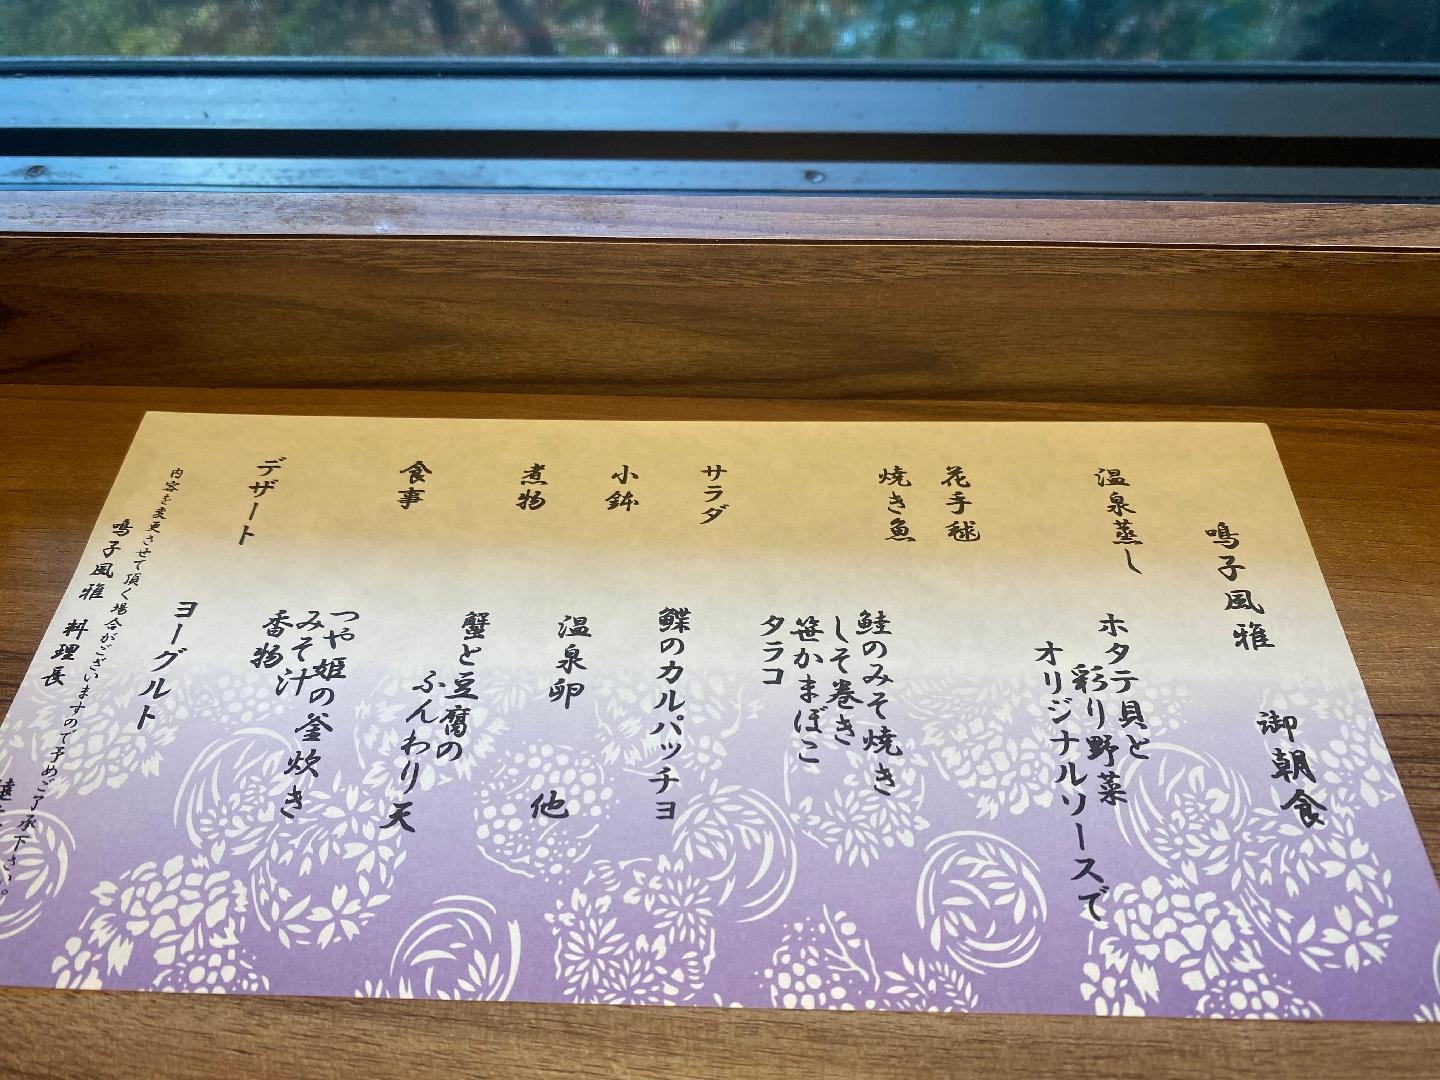 鳴子風雅　御朝食
温泉蒸し　ホタテ貝と
彩り野菜
オリジナルソースで
花手毬
焼き魚　鮭のみそ焼き
しそ巻き
笹かまぼこ
タラコ
サラダ　鰈のカルパッチョ
小鉢　温泉卵　他
煮物　蟹と豆腐の
ふんわり天
食事　つや姫の釜炊き
みそ汁
香物
デザート　ヨーグルト
内容を変更させて頂く場合がございますので予めご了承下さい。
鳴子風雅　料理長